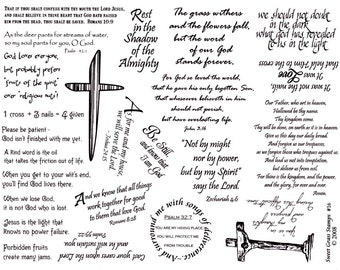 THAT IF THOU SHALT CONFESS WITH THY MOUTH THE LORD JESUS,
AND SHALT BELIEVE IN THINE HEART THAT GOD HATH RAISED
HIM FROM THE DEAD, THOU SHALT BE SAVED. ROMANS 10:9
As the deer pants for streams of water,
so my soul pants for you, O God.
Psalm 42:1
God loves everyone,
but probably prefers
"fruits of the spirit"
over "religious nuts"!
1 cross + 3 nails = 4 given
Please be patient -
God isn't finished with me yet.
A kind word is the oil
that takes the friction out of life.
When you get to your wit's end,
you'll find God lives there.
When we lose God,
it is not God who is lost.
Jesus is the light that
knows no power failure.
Forbidden fruits
create many jams.
Rest
in the
Shadow
of the
Almighty
As for me and my house,
we will serve the Lord.
Joshua 24:15
Be Still
and know
that I am
God
And we know that all things
work together for good
to them that love God
Romans 8:28
The grass withers
and the flowers fall,
but the word
of our God
stands forever.
For God so loved the world,
that he gave his only begotten Son,
that whosoever believeth in him
should not perish,
but have everlasting life.
John 3:16
"Not by might
nor by power,
but by my Spirit"
says the Lord.
Zechariah 4:6
PSALM 32:7
YOU ARE MY HIDING PLACE
YOU WILL PROTECT ME
FROM TROUBLE
And surround me with songs of deliverance
we should not doubt
in the dark
what God has revealed
to us in the light
Our Father, who art in heaven,
Hallowed be thy name.
Thy kingdom come.
Thy will be done, on earth as it is in heaven.
Give us this day our daily bread.
And forgive us our trespasses,
as we forgive those who trespass against us.
And lead us not into temptation,
but deliver us from evil.
For thine is the kingdom, and the power,
and the glory, for ever and ever.
Sweet Grass Stamps #16
© 2008